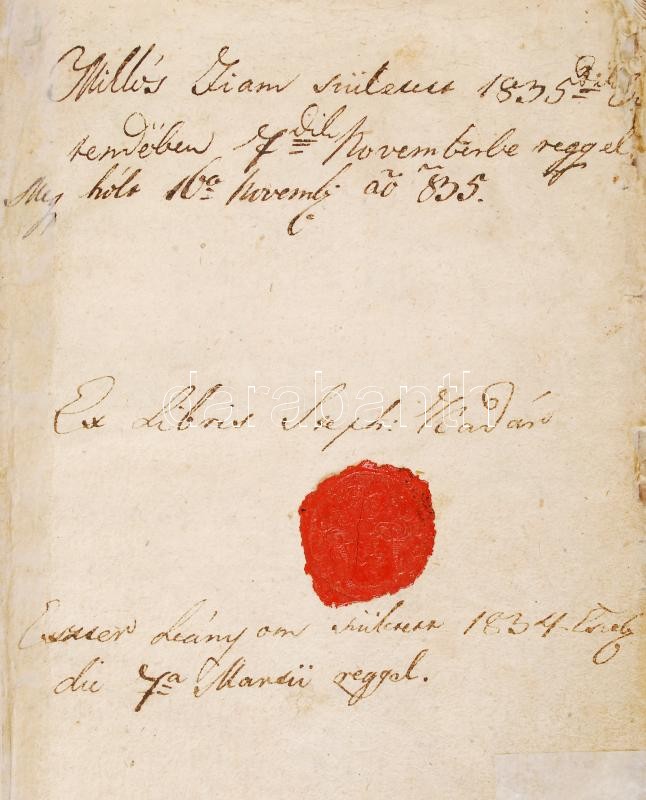 Millós Fiam született 1835dik
tendőben 7dik Novemberbe reggel.
Meg hólt 16a Novemb: ao 835.
darabanth
Ex Libris Steph: Kádár
Eszter Leányom született 1834
die 7a Martii reggel.